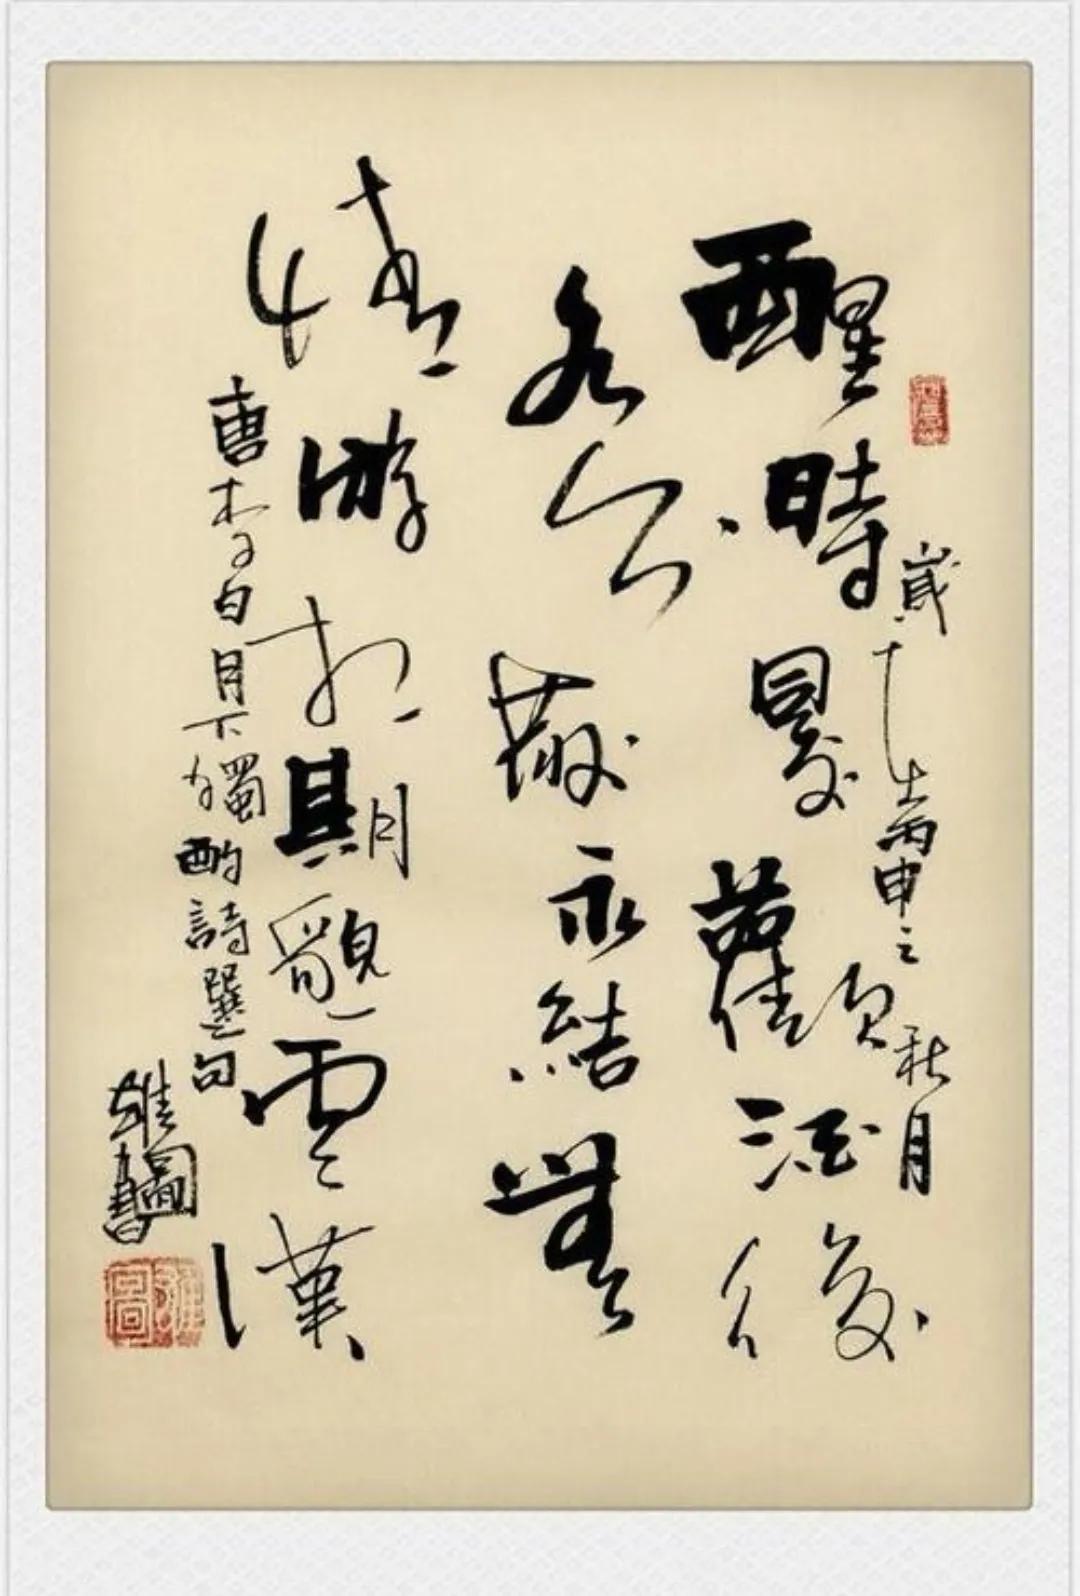 歲在丙申之秋月
醒時同交歡醉後
各分散永結無
情游相期邈雲漢
唐李白月下獨酌詩選句
雄圖書
雄圖